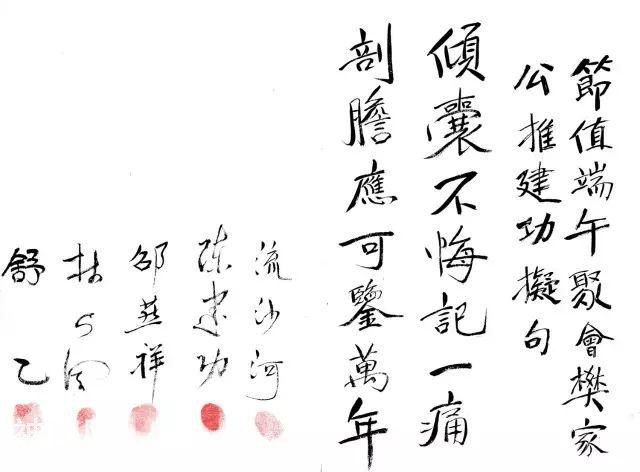 節值端午聚會樊家
公推建功擬句
傾囊不悔記一痛
剖膽應可鑒萬年
流沙河
陈建功
邵燕祥
舒乙